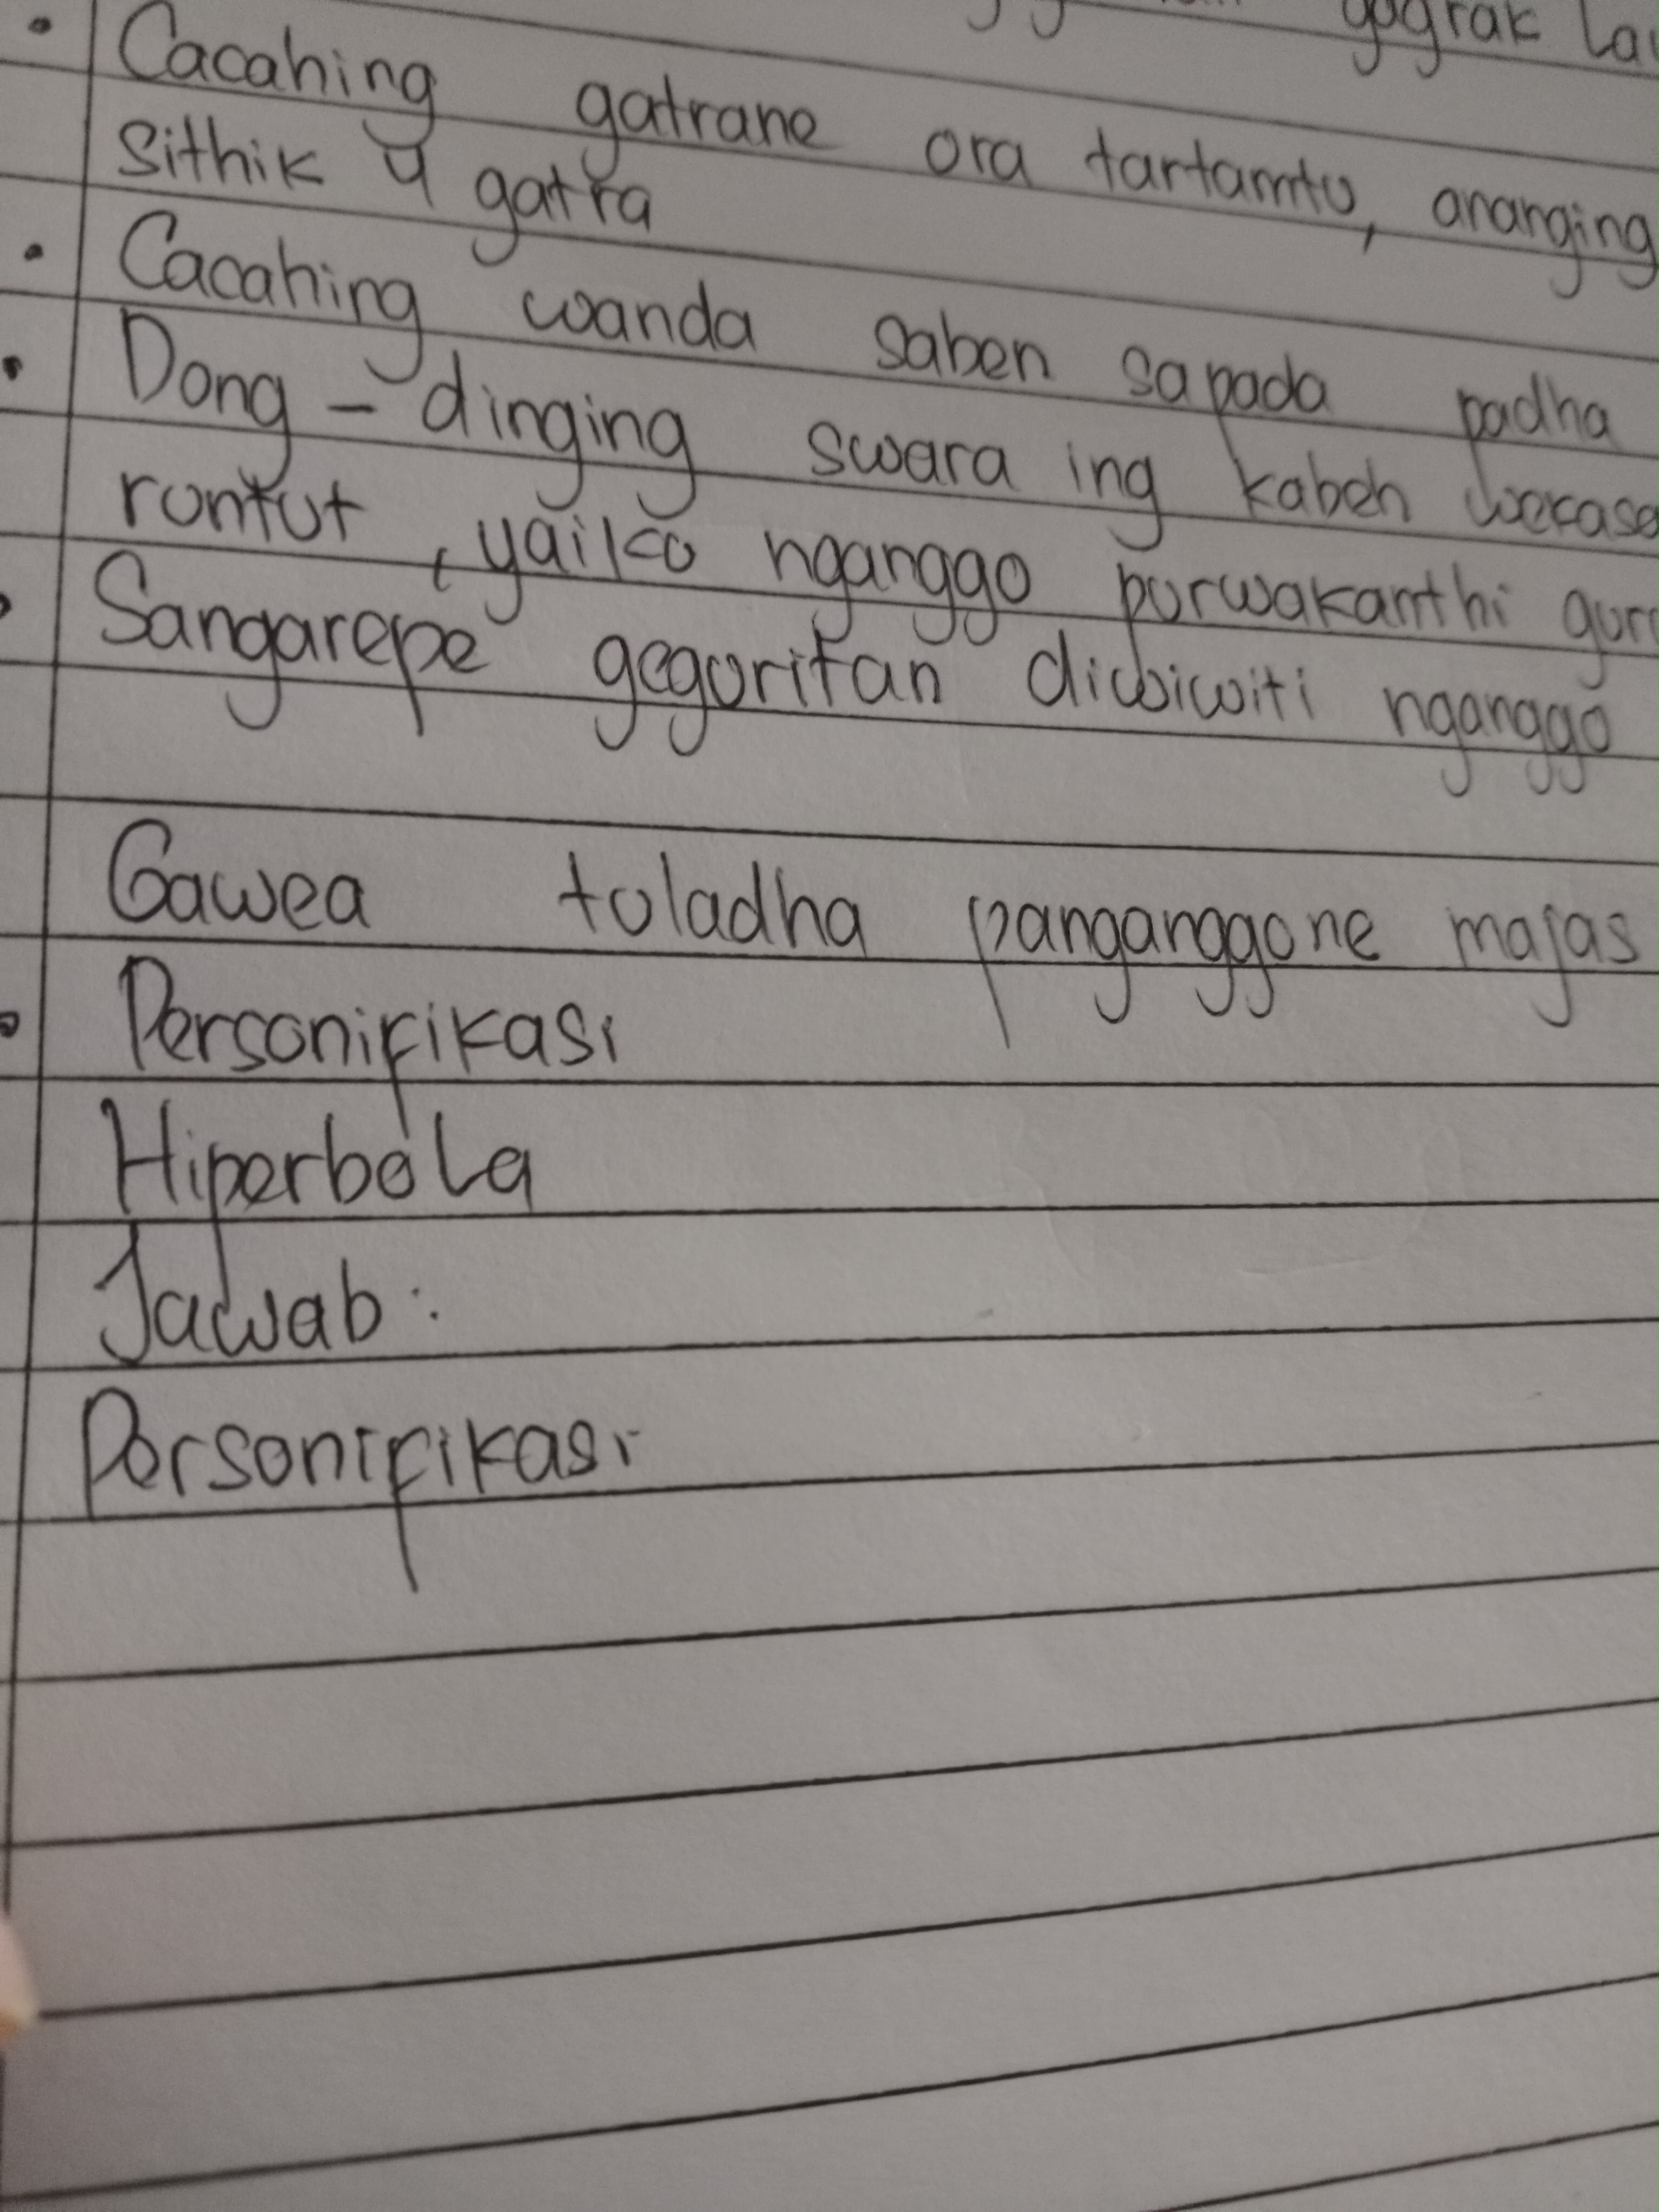 gograk
Cacahing gatrane ora tartamtu, ananging
sithik 4 gatra
Cacahing wanda saben sapada padha
Dong - dinging swara ing kabeh
runtut, yaiko nganggo purwakanthi
Sangarepe geguritan diwiwiti nganggo
Gawea tuladha panganggone majas
Personifikasi
Hiperbola
Jawab :
Personifikasi